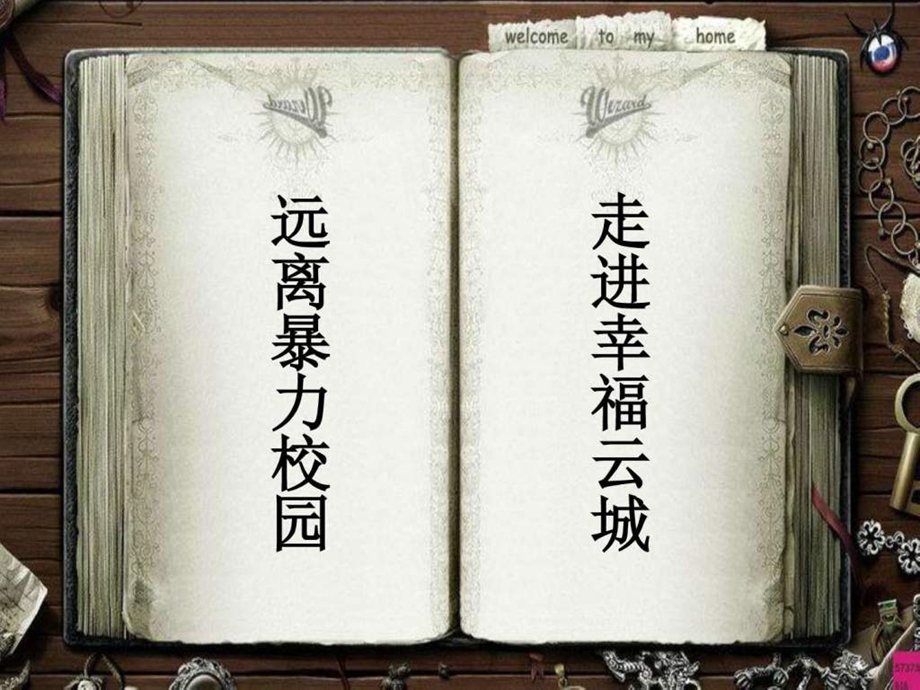 welcome to my home
Wezard
远离暴力校园
走进幸福云城